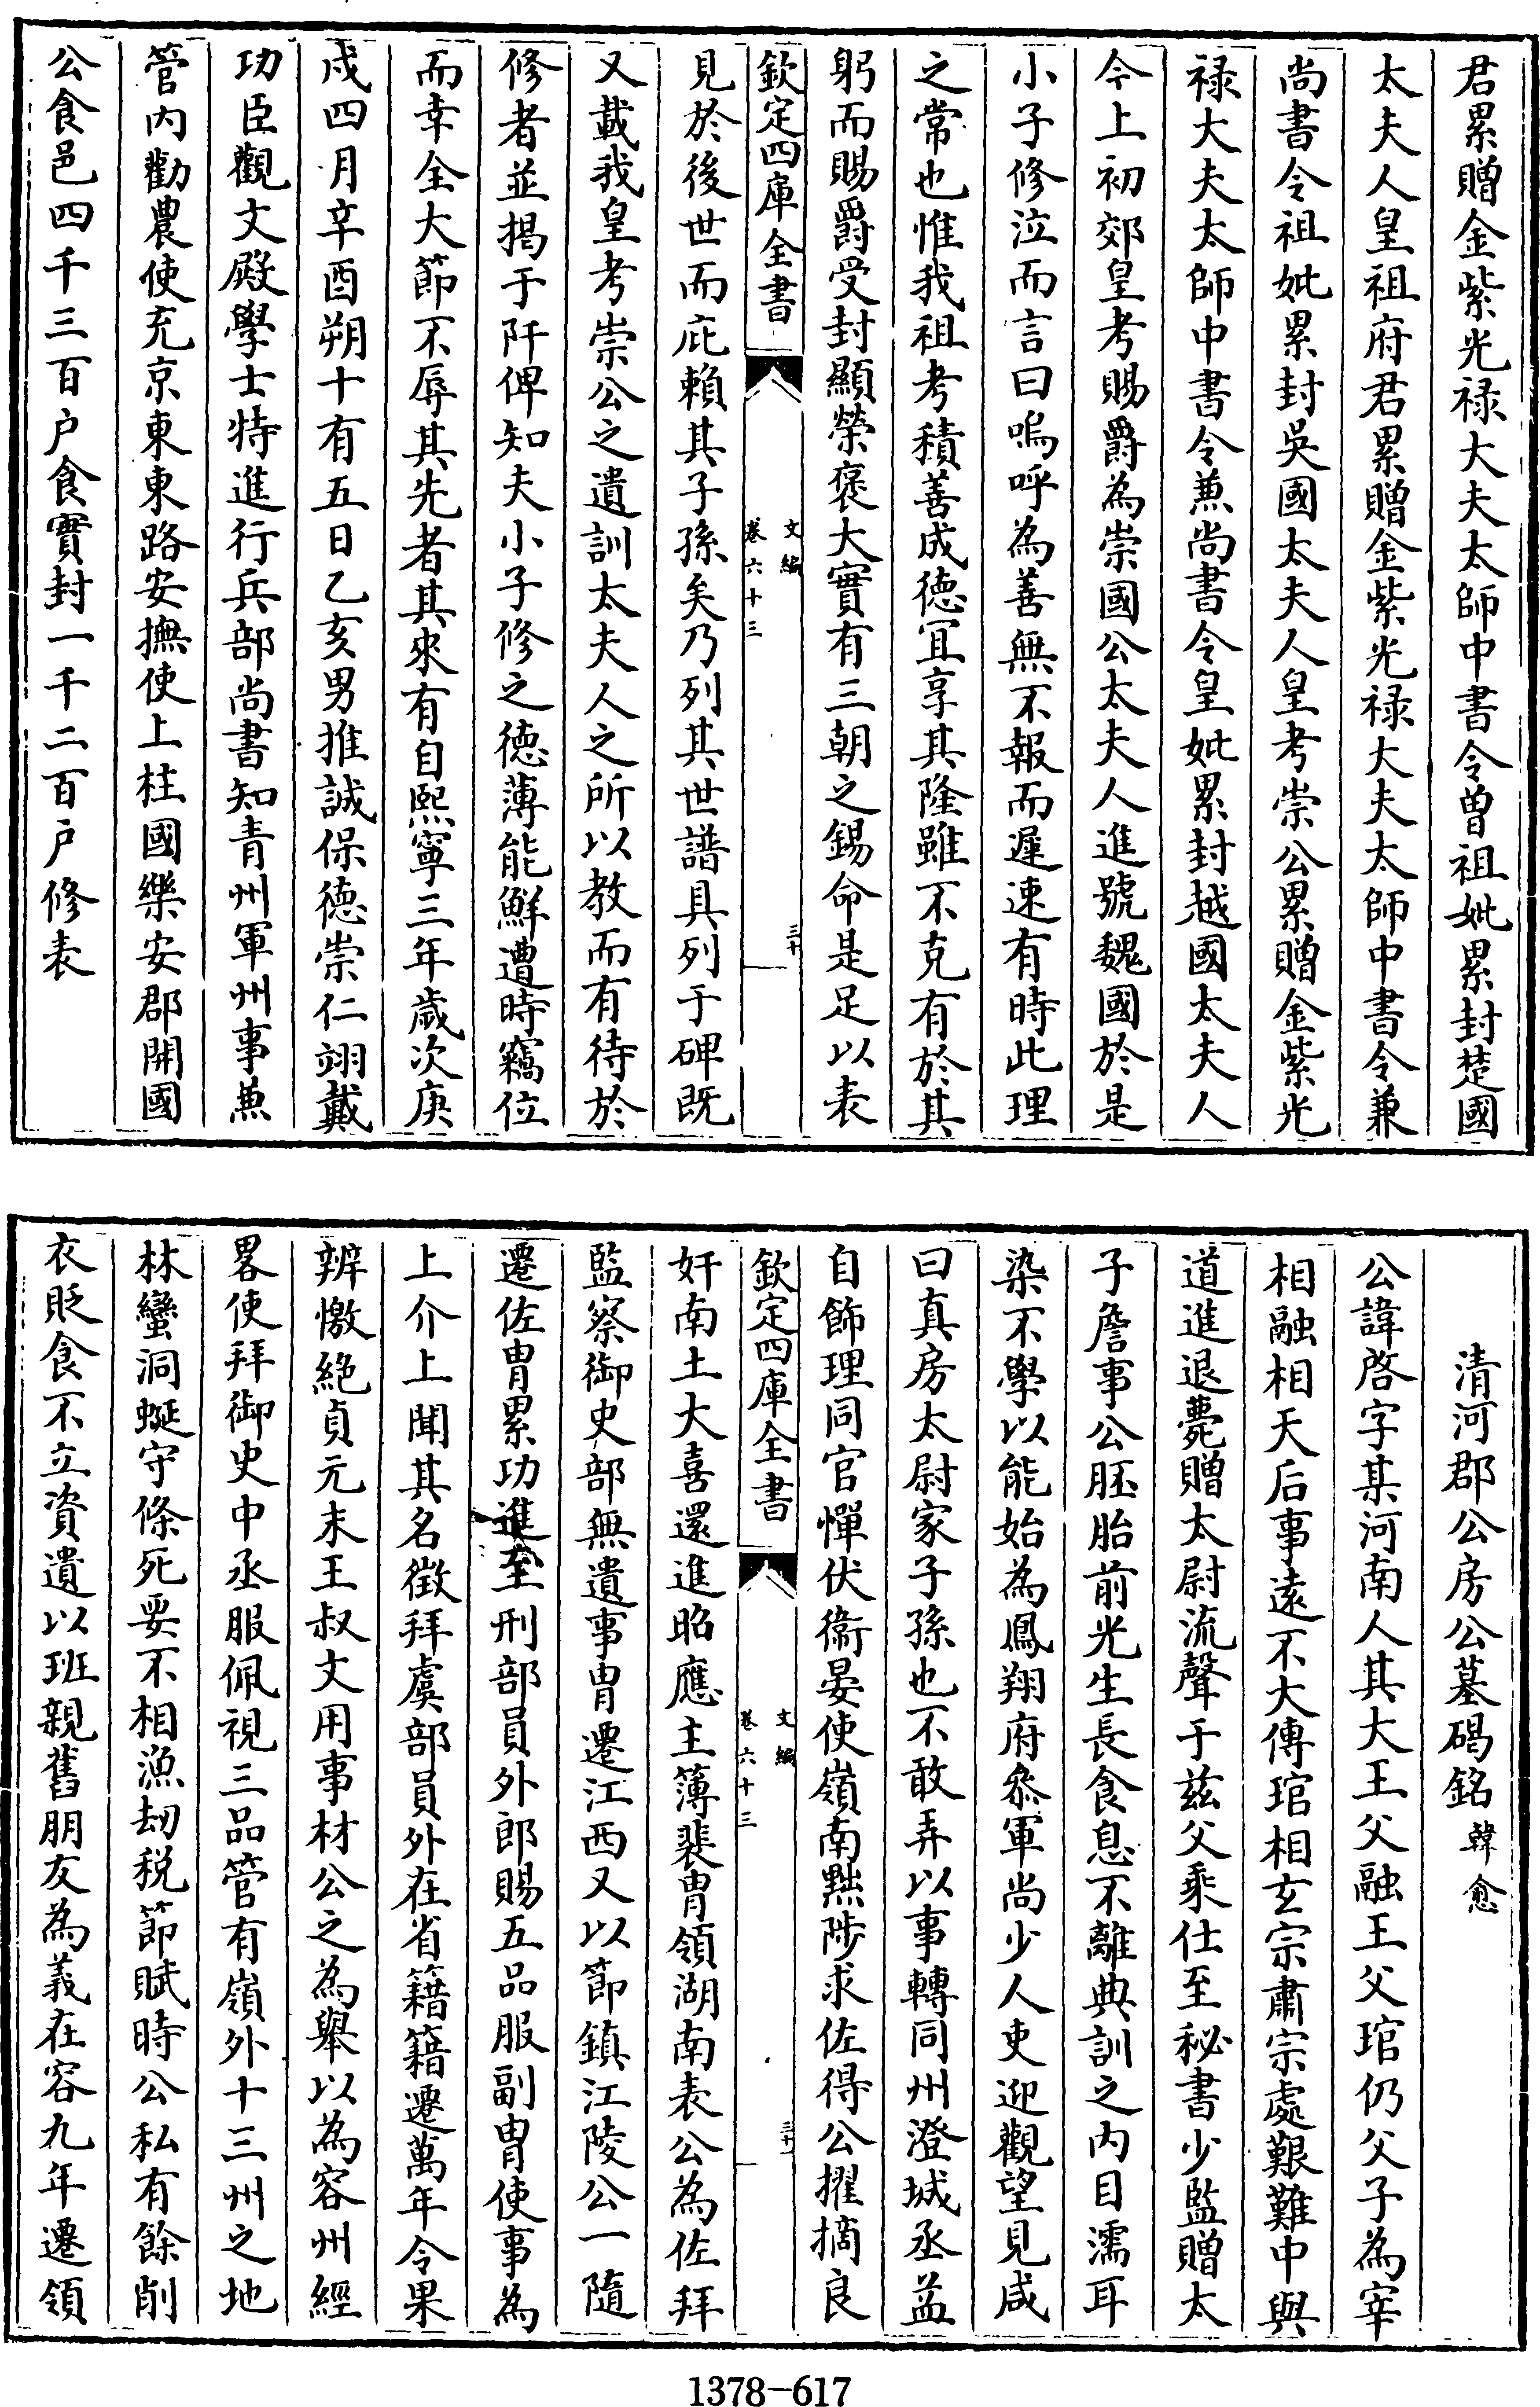 君累贈金紫光禄大夫太師中書令曽祖妣累封楚國
太夫人皇祖府君累贈金紫光禄大夫太師中書令兼
尚書令祖妣累封吳國太夫人皇考崇公累贈金紫光
禄大夫太師中書令兼尚書令皇妣累封越國太夫人
今上初郊皇考賜爵為崇國公太夫人進號魏國於是
小子修泣而言曰嗚呼為善無不報而遲速有時此理
之常也惟我祖考積善成德宜享其隆雖不克有於其
躬而賜爵受封顯榮褒大實有三朝之錫命是足以表
欽定四庫全書
文編
卷六十三
三十
見於後世而庇賴其子孫矣乃列其世譜具列于碑既
又載我皇考崇公之遺訓太夫人之所以教而有待於
修者並揭于阡俾知夫小子修之德薄能鮮遭時竊位
而幸全大節不辱其先者其來有自熙寧三年歲次庚
戍四月辛酉朔十有五日乙亥男推誠保德崇仁翊戴
功臣觀文殿學士特進行兵部尚書知青州軍州事兼
管内勸農使充京東東路安撫使上柱國樂安郡開國
公食邑四千三百户食實封一千二百户修表
清河郡公房公墓碣銘 韓愈
公諱啓字某河南人其大王父融王父琯仍父子為宰
相融相天后事遠不大傳琯相玄宗肅宗處艱難中與
道進退薨贈太尉流聲于兹父乘仕至秘書少監贈太
子詹事公胚胎前光生長食息不離典訓之内目濡耳
染不學以能始為鳳翔府叅軍尚少人吏迎觀望見咸
曰真房太尉家子孫也不敢弄以事轉同州澄城丞益
自飾理同官憚伏衞晏使嶺南黜陟求佐得公擢摘良
欽定四庫全書
文編
卷六十三
三十一
奸南土大喜還進昭應主簿裴胄領湖南表公為佐拜
監察御史部無遺事胄遷江西又以節鎮江陵公一隨
遷佐胄累功進至刑部員外郎賜五品服副胄使事為
上介上聞其名徵拜虞部員外在省籍籍遷萬年令果
辨憿絶貞元末王叔文用事材公之為舉以為容州經
畧使拜御史中丞服佩視三品管有嶺外十三州之地
林蠻洞蜒守條死要不相漁刧税節賦時公私有餘削
衣貶食不立資遺以班親舊朋友為義在容九年遷領
1378—617